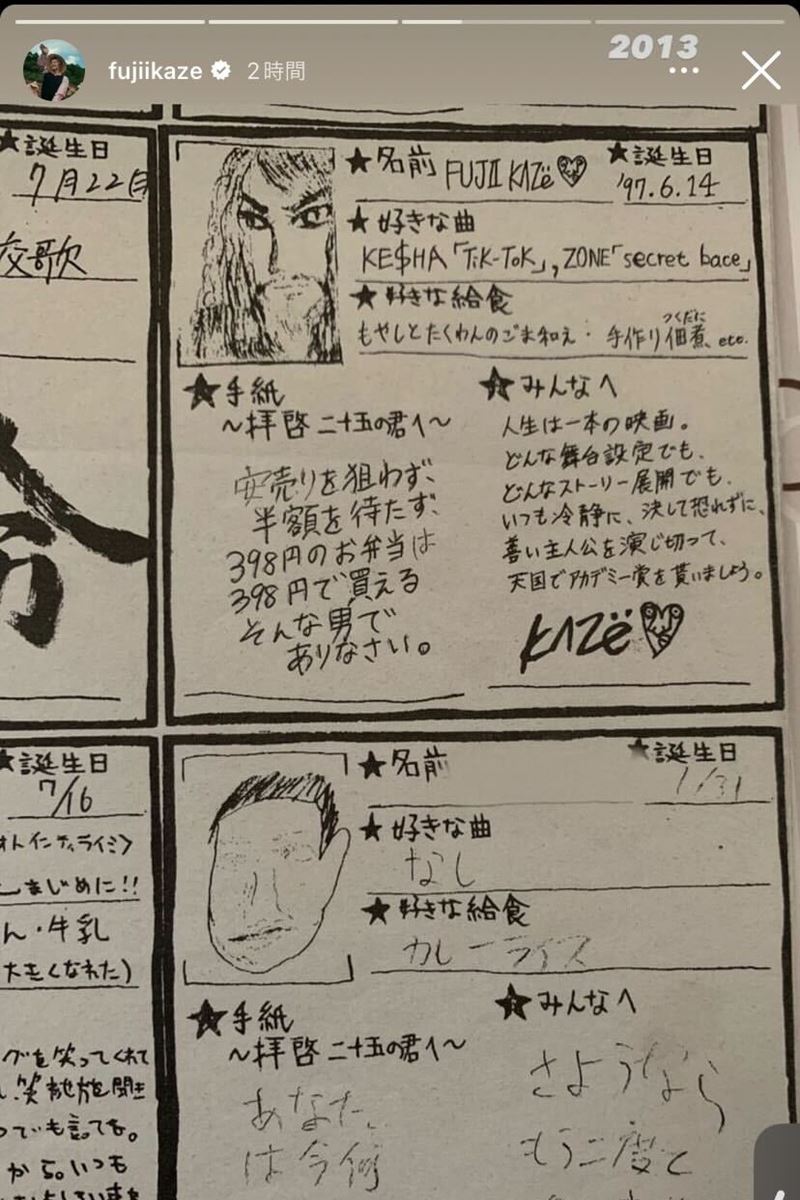 2013
fujiikaze 2時間
★誕生日
7月22日
交歌
★名前 FUJII KAZë ★誕生日
'97.6.14
★好きな曲
KE$HA「TiK-ToK」, ZONE「secret bace」
★好きな給食
つくだに
もやしとたくわんのごま和え・手作り佃煮、etc.
★手紙
〜拝啓 二十五の君へ〜
安売りを狙わず、
半額を待たず、
398円のお弁当は
398円で買える
そんな男で
ありなさい。
★みんなへ
人生は一本の映画。
どんな舞台設定でも、
どんなストーリー展開でも、
いつも冷静に、決して恐れずに、
善い主人公を演じ切って、
天国でアカデミー賞を貰いましょう。
KAZë
★誕生日
7/16
オトインティライミ〉
まじめに!!
ん・牛乳
大きくなれた)
グを笑ってくれて
っでも言ってな。
から。いつも
★名前
★誕生日
1/31
★好きな曲
なし
★好きな給食
カレーライス
★手紙
〜拝啓 二十五の君へ〜
あなた
は今何
★みんなへ
さようなら
もう二度と